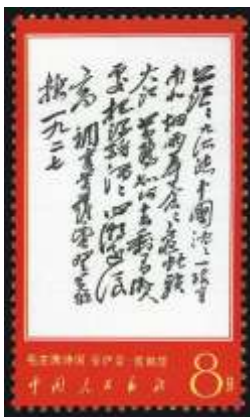 茫茫九派流中國沉沉一線穿
南北烟雨莽苍苍龜蛇鎖
大江黃鶴知何去剩有游人
處把酒酹滔滔心潮逐浪
高 調寄菩萨蛮登黃鶴
楼一九二七
毛主席诗词 菩萨蛮·黄鹤楼
中国人民邮政
8分